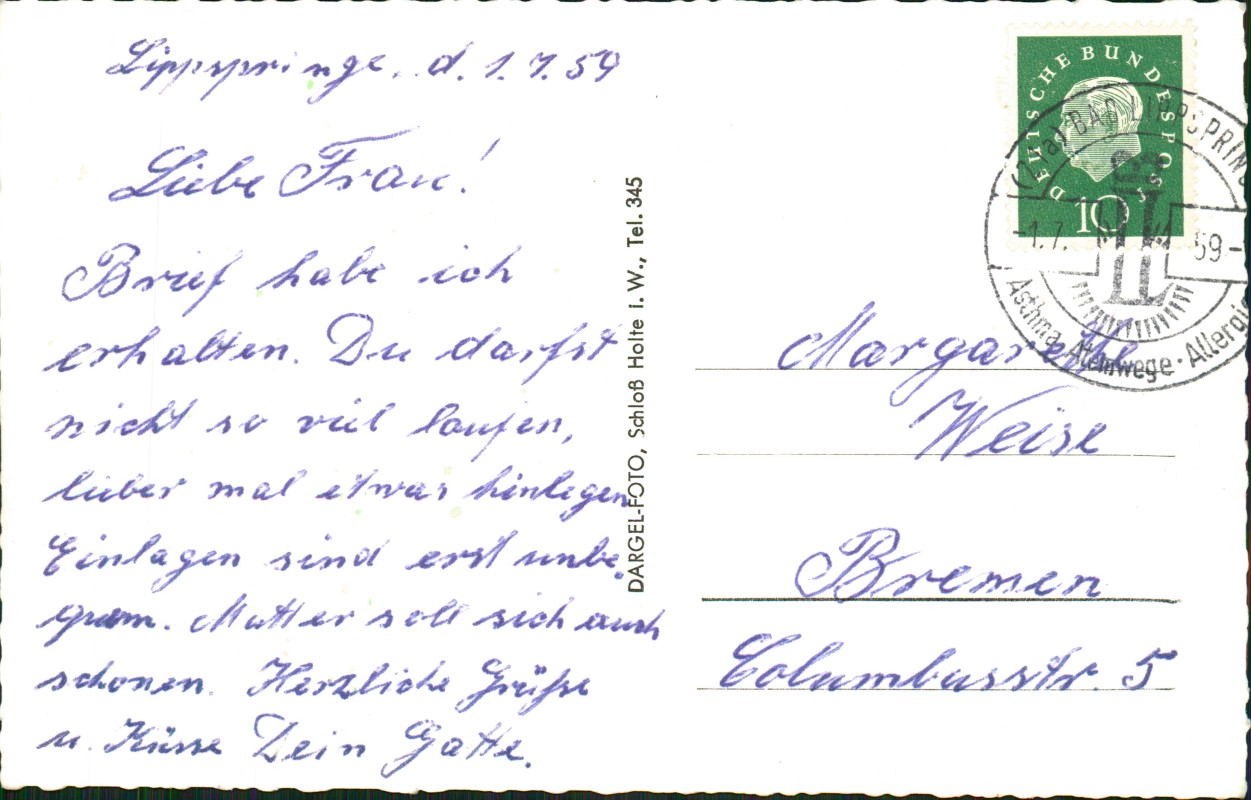 Lippspringe, d. 1.7.59
Liebe Frau!
Brief habe ich
erhalten. Du darfst
nicht so viel laufen,
lieber mal etwas hinlegen
Einlagen sind erst unbe-
quem. Mutter soll sich auch
schonen. Herzliche Grüße
u. Küsse Dein Gatte.
DARGEL-FOTO, Schloß Holte i. W., Tel. 345
DEUTSCHE BUNDESPOST
10
(21a) BAD LIPPSPRING
-1.7. 59-
Asthma · Atemwege · Allergie
Margarethe
Weise
Bremen
Columbusstr. 5